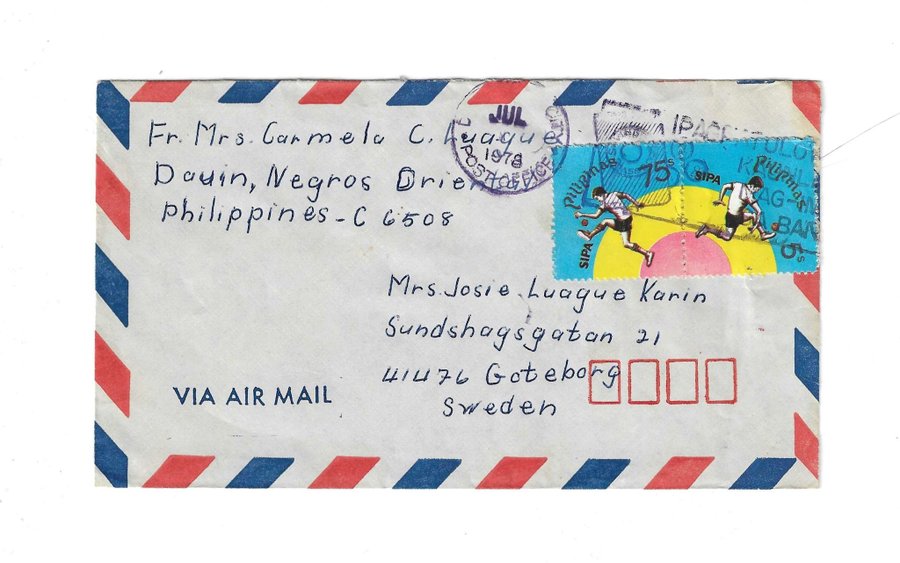 Fr. Mrs. Carmela C. Luague
Dauin, Negros Orient
Philippines - C 6508
JUL
1978
POST OFFICE
Pilipinas 75s
SIPA
SIPA
Pilipinas
Mrs. Josie Luague Karin
Sundshagsgatan 21
41476 Goteborg
Sweden
VIA AIR MAIL